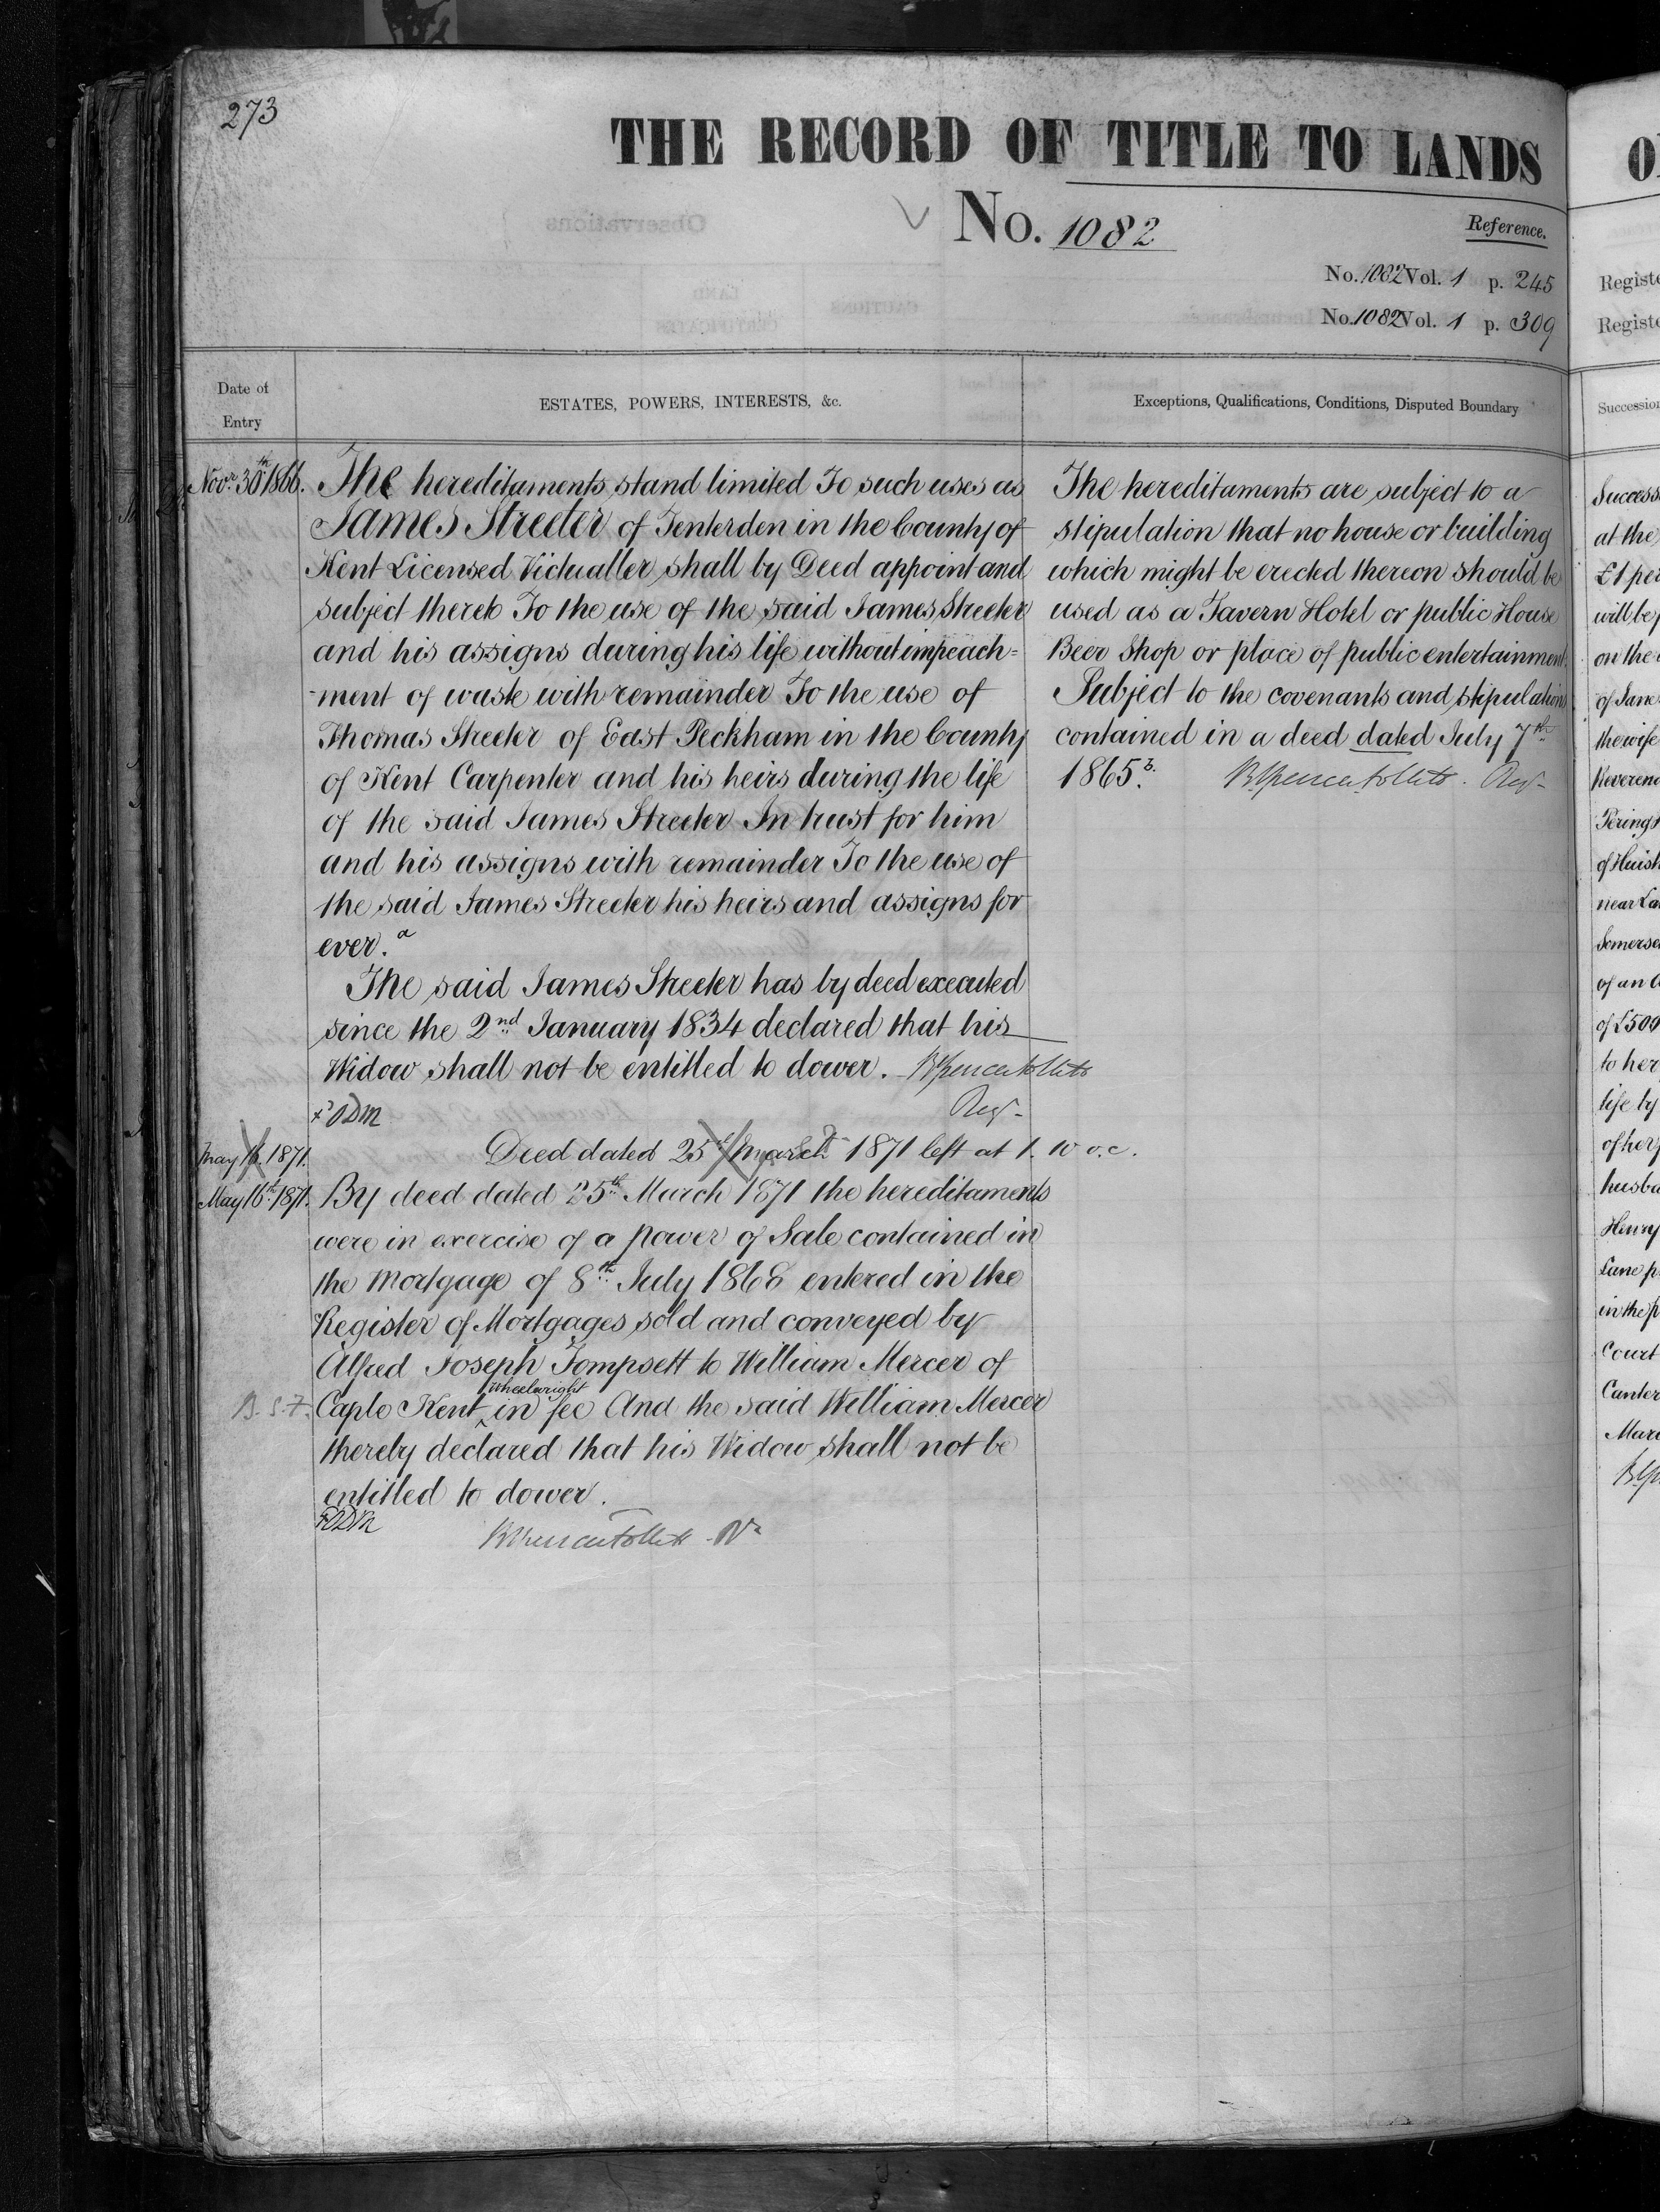 273
THE RECORD OF TITLE TO LANDS
No. 1082
Reference.
No. 1082 Vol. 1 p. 245
No. 1082 Vol. 1 p. 309
Date of
Entry
ESTATES, POWERS, INTERESTS, &c.
Exceptions, Qualifications, Conditions, Disputed Boundary
Novr. 30th 1866.
The hereditaments stand limited To such uses as
James Streeter of Tenterden in the County of
Kent Licensed Victualler shall by Deed appoint and
subject thereto To the use of the said James Streeter
and his assigns during his life without impeach=
-ment of waste with remainder To the use of
Thomas Streeter of East Peckham in the County
of Kent Carpenter and his heirs during the life
of the said James Streeter In trust for him
and his assigns with remainder To the use of
the said James Streeter his heirs and assigns for
ever. a
The said James Streeter has by deed executed
since the 2nd January 1834 declared that his
Widow shall not be entitled to dower. BSpencer Follett
Regr
The hereditaments are subject to a
stipulation that no house or building
which might be erected thereon should be
used as a Tavern Hotel or public House
Beer Shop or place of public entertainment.
Subject to the covenants and stipulations
contained in a deed dated July 7th
1865. b. BSpencer Follett. Regr
May 16. 1871.
Deed dated 25th March 1871 left at 1. 10 o.c.
May 16th 1871.
By deed dated 25th March 1871 the hereditaments
were in exercise of a power of Sale contained in
the Mortgage of 8th July 1868 entered in the
Register of Mortgages sold and conveyed by
Alfred Joseph Tompsett to William Mercer of
B.S.F. Caple Kent Wheelwright in fee And the said William Mercer
thereby declared that his Widow shall not be
entitled to dower.
BSpencer Follett Rr
Registe
Registe
Succession
Success
at the
£1 per
will be
on the
of Jane
the wife
Reverend
Pering
of Huish
near La
Somerse
of an
of £500
to her
life by
of her
husba
Henry
Lane p
in the p
Court
Canter
Marc